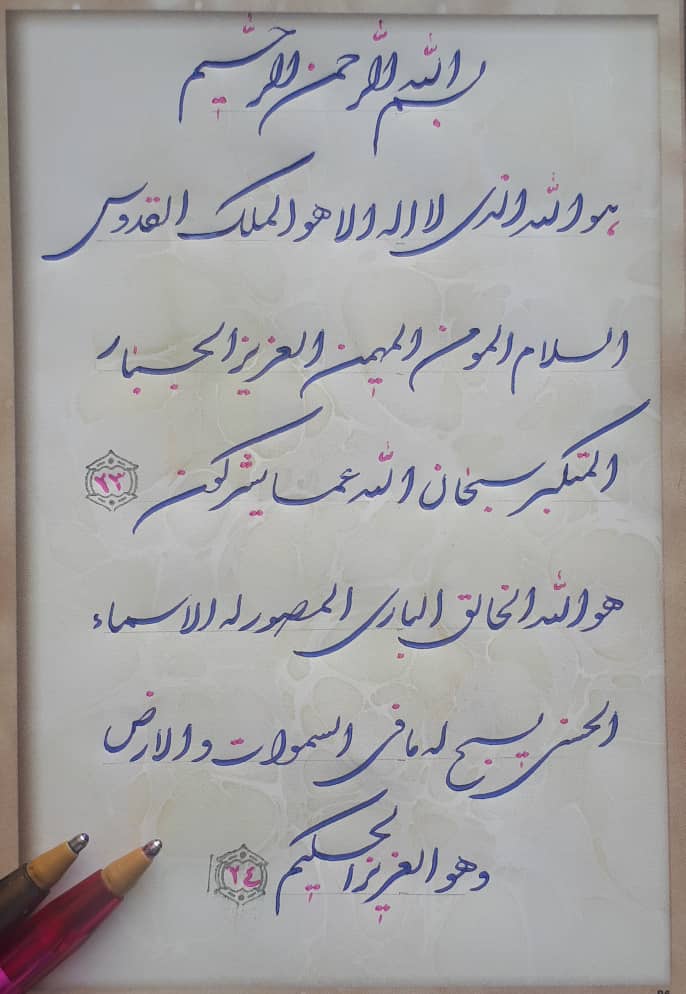 بسم الله الرحمن الرحیم
هو الله الذی لا اله الا هو الملک القدوس
السلام المومن المهیمن العزیز الجبار
المتکبر سبحان الله عما یشرکون ٢٣
هو الله الخالق الباری المصور له الاسماء
الحسنی یسبح له ما فی السموات و الارض
و هو العزیز الحکیم ٢٤